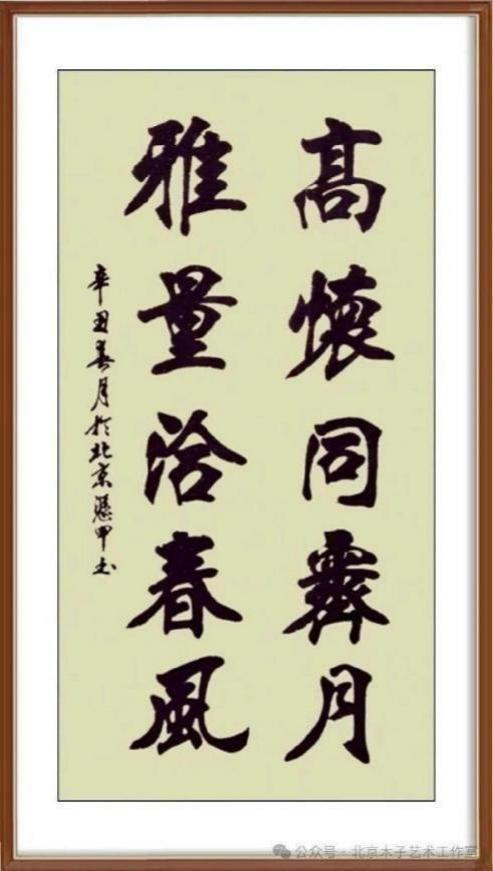 髙懷同霽月
雅量洽春風
辛丑春月於北京甲书
公众号 · 北京木子艺术工作室